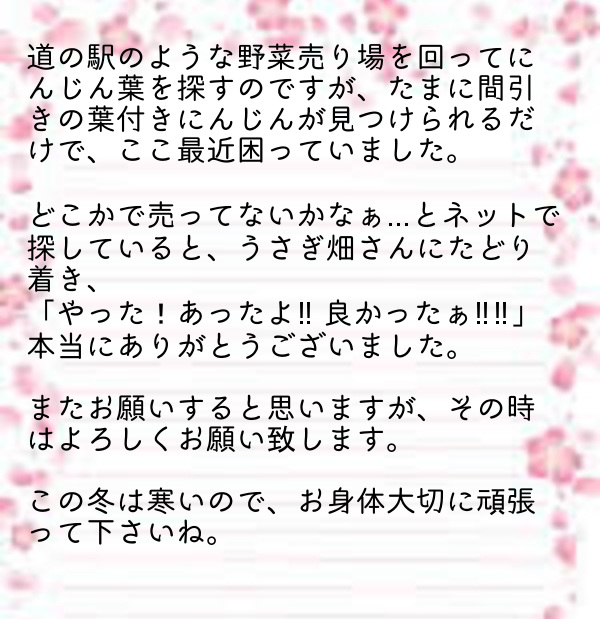 道の駅のような野菜売り場を回ってに
んじん葉を探すのですが、たまに間引
きの葉付きにんじんが見つけられるだ
けで、ここ最近困っていました。
どこかで売ってないかなぁ…とネットで
探していると、うさぎ畑さんにたどり
着き、
「やった！あったよ‼ 良かったぁ‼‼」
本当にありがとうございました。
またお願いすると思いますが、その時
はよろしくお願い致します。
この冬は寒いので、お身体大切に頑張
って下さいね。